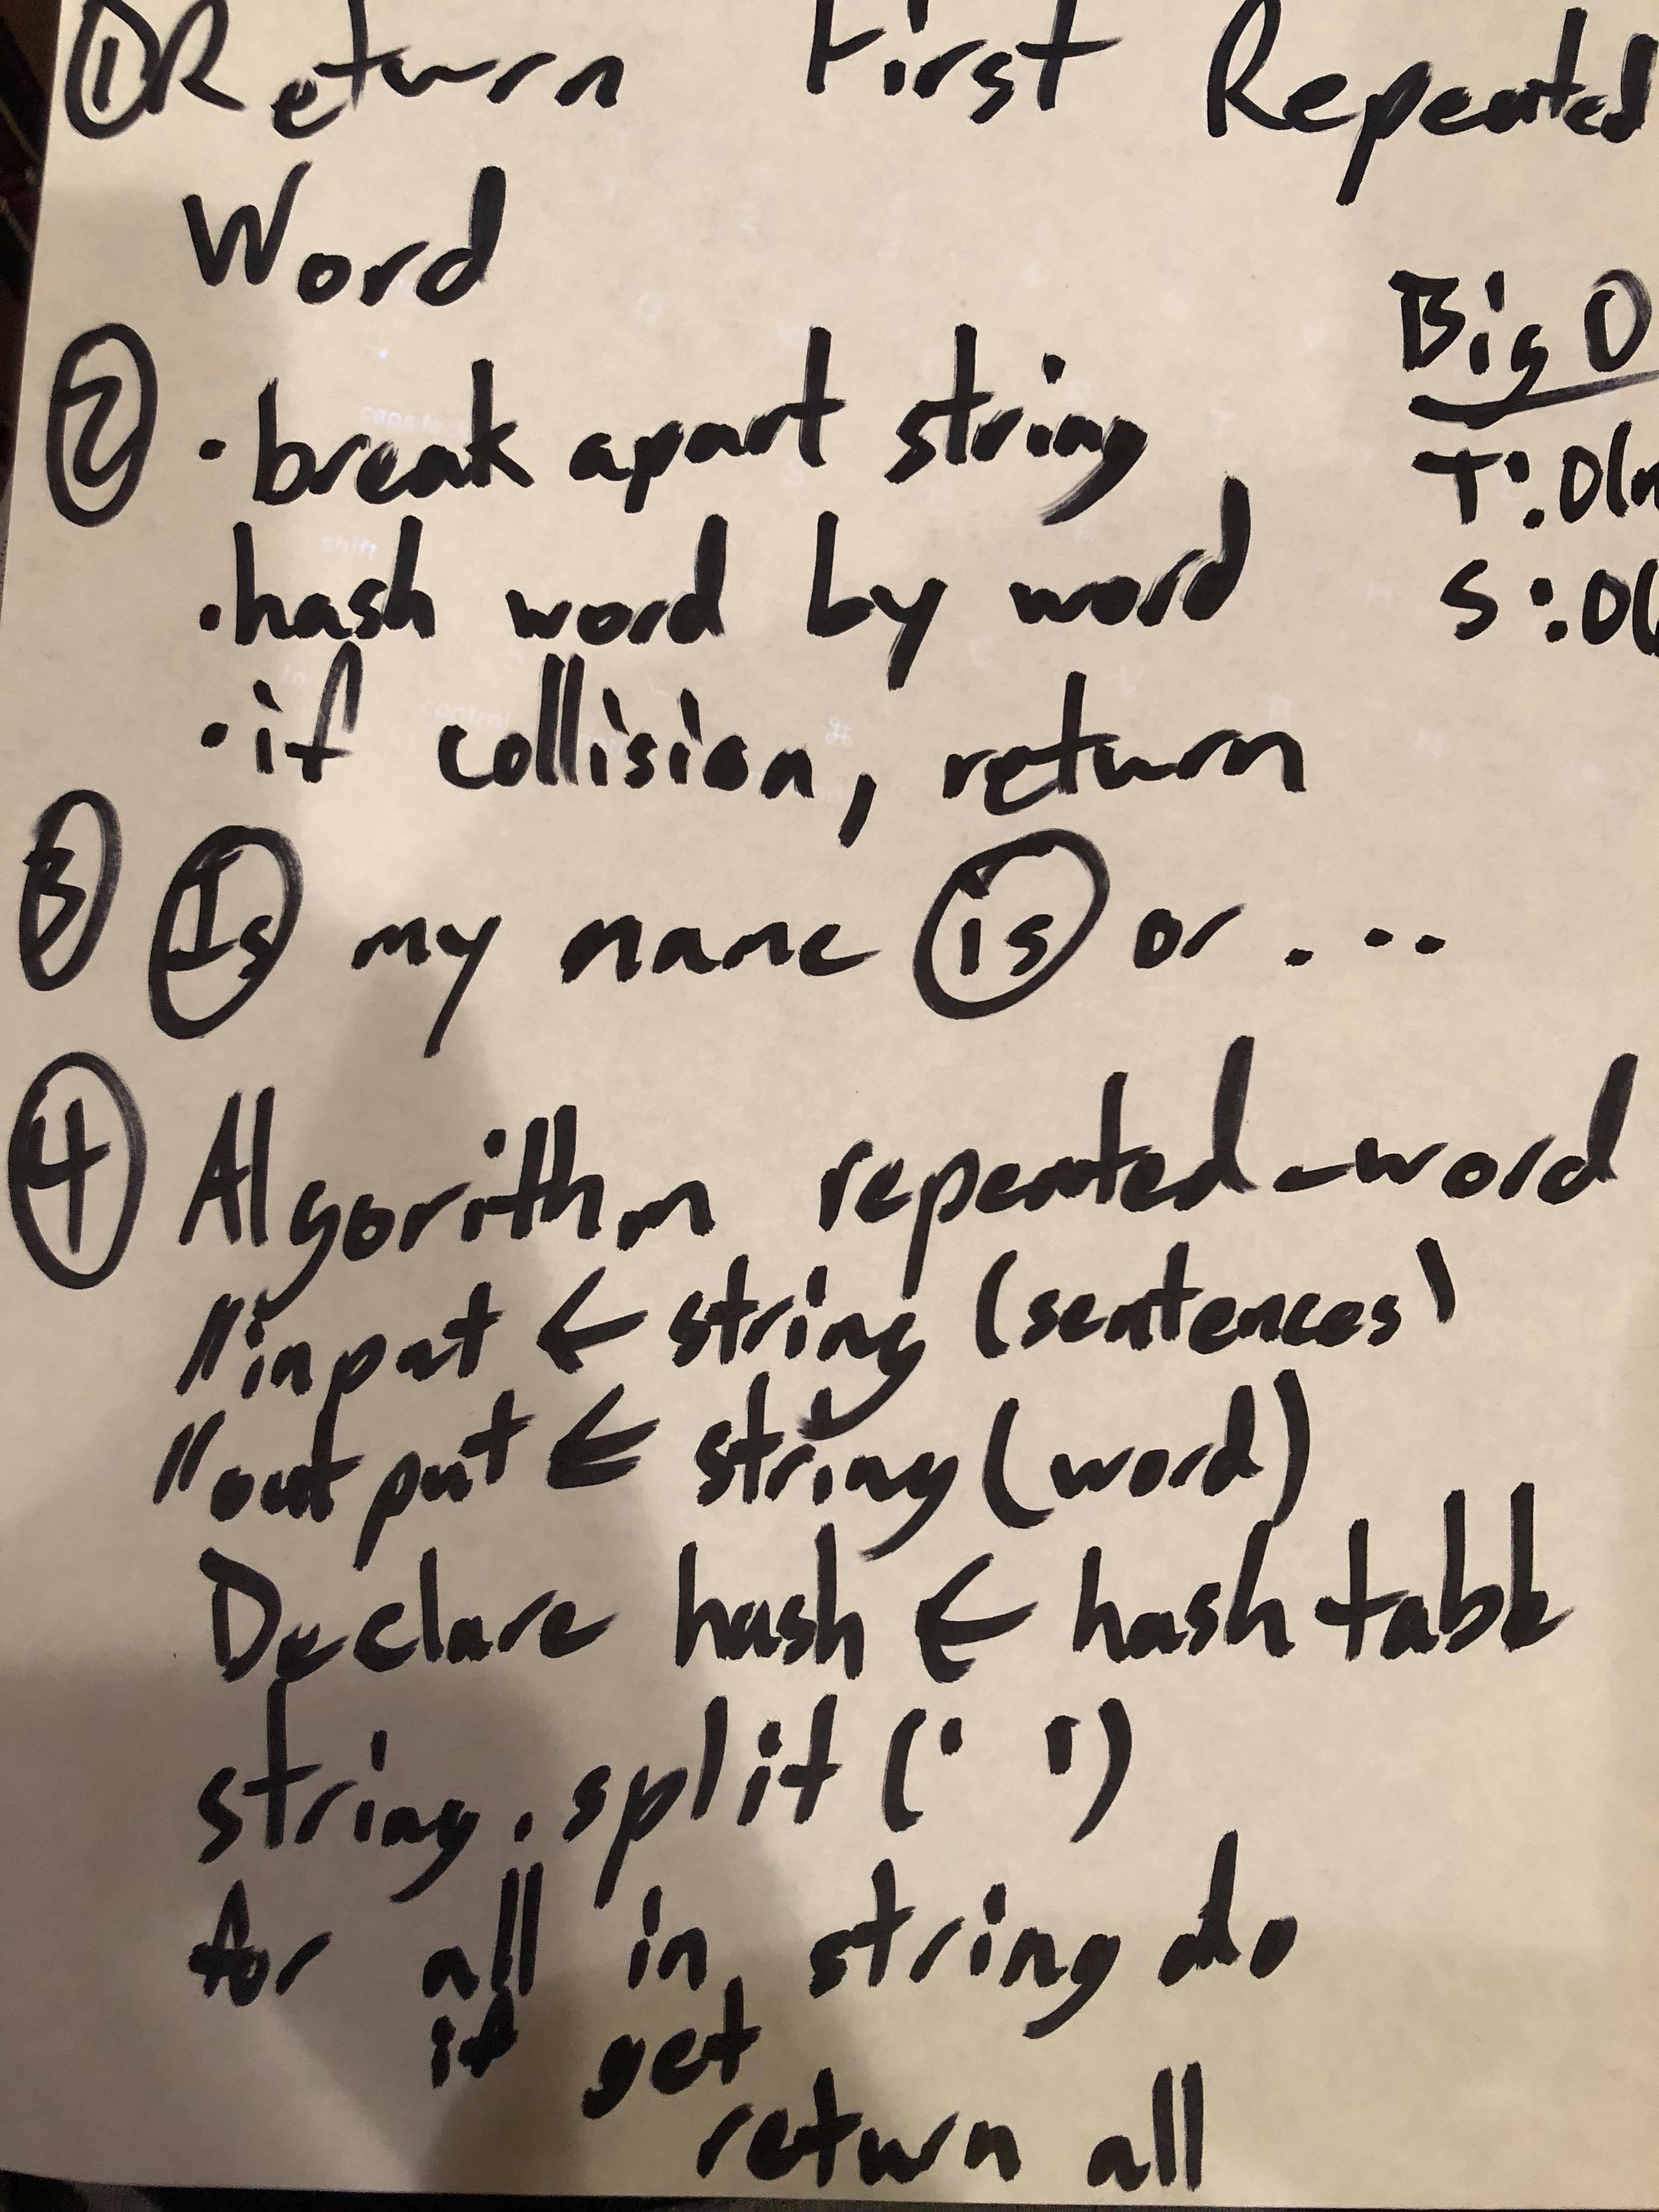 ① Return First Repeated
Word
Big O
T:O(n
S:O(
② • break apart string
• hash word by word
• if collision, return
③ Is my name is or ...
④ Algorithm repeated_word
// input ← string (sentences)
// output ← string (word)
Declare hash ← hash table
string.split(' ')
for all in string do
if get
return all